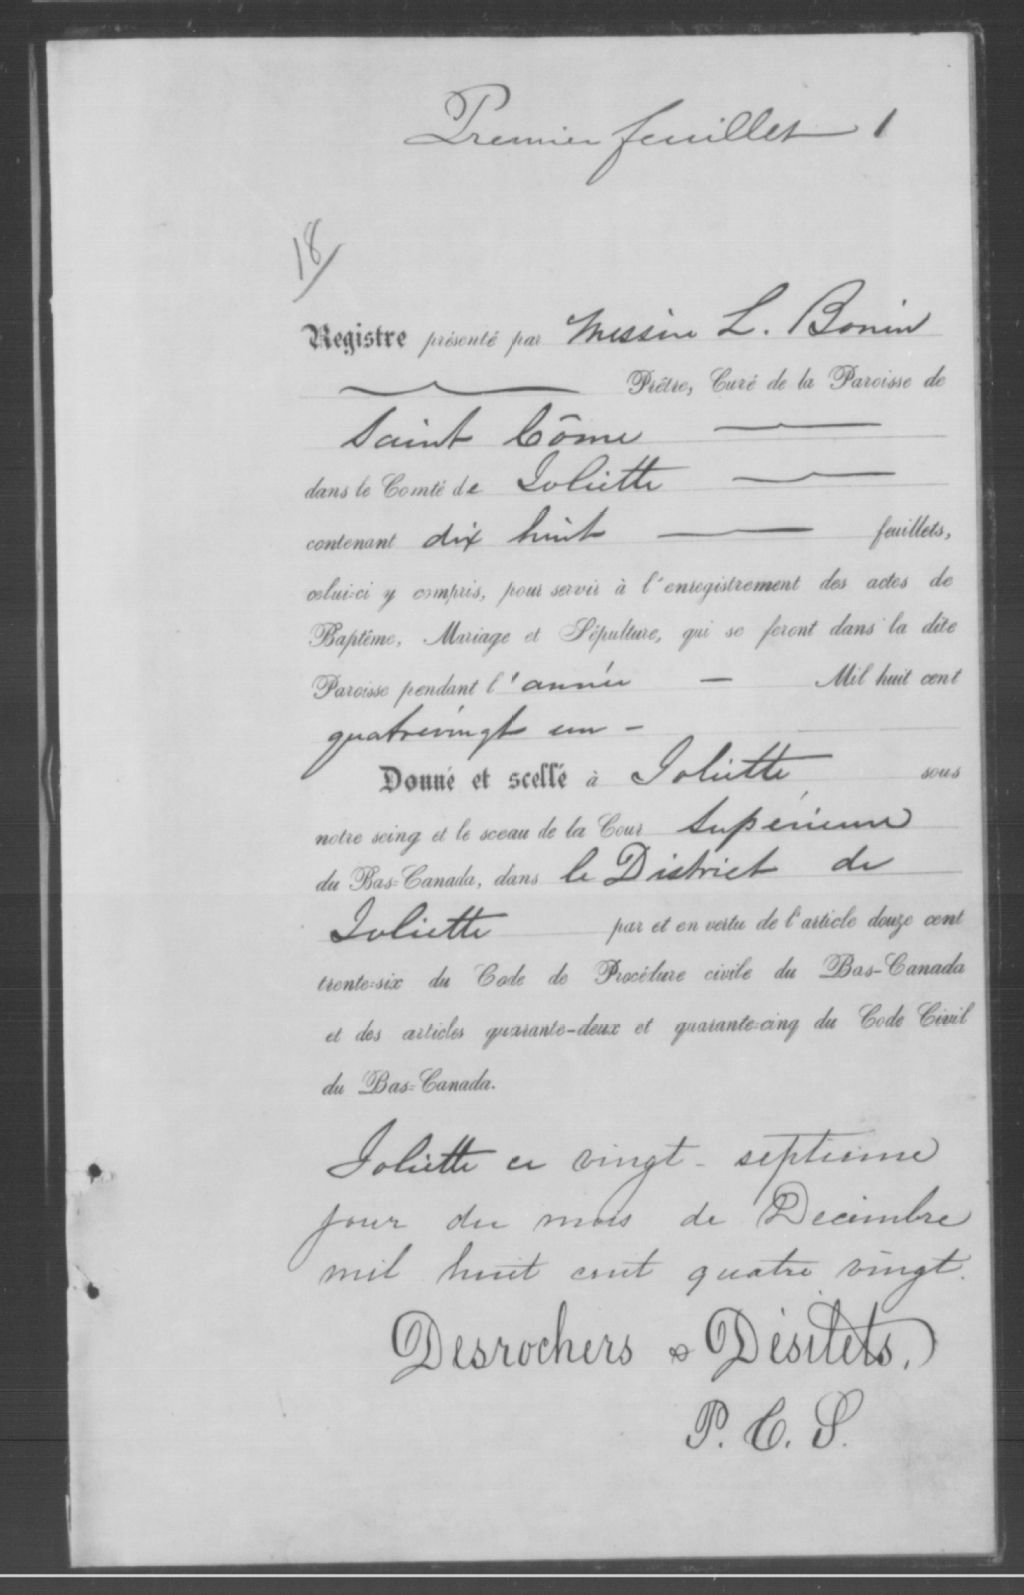 Premier feuillet 1
18
Registre présenté par Messire L. Bonin
Prêtre, Curé de la Paroisse de
Saint Côme
dans le Comté de Joliette
contenant dix huit feuillets,
celui-ci y compris, pour servir à l'enregistrement des actes de
Baptême, Mariage et Sépulture, qui se feront dans la dite
Paroisse pendant l'année — Mil huit cent
quatrevingt un -
Donné et scellé à Joliette sous
notre seing et le sceau de la Cour Supérieure
du Bas-Canada, dans le District de
Joliette par et en vertu de l'article douze cent
trente-six du Code de Procédure civile du Bas-Canada
et des articles quarante-deux et quarante-cinq du Code Civil
du Bas-Canada.
Joliette ce vingt-septième
jour du mois de Décembre
mil huit cent quatre vingt.
Desrochers & Désilets,
P. C. S.